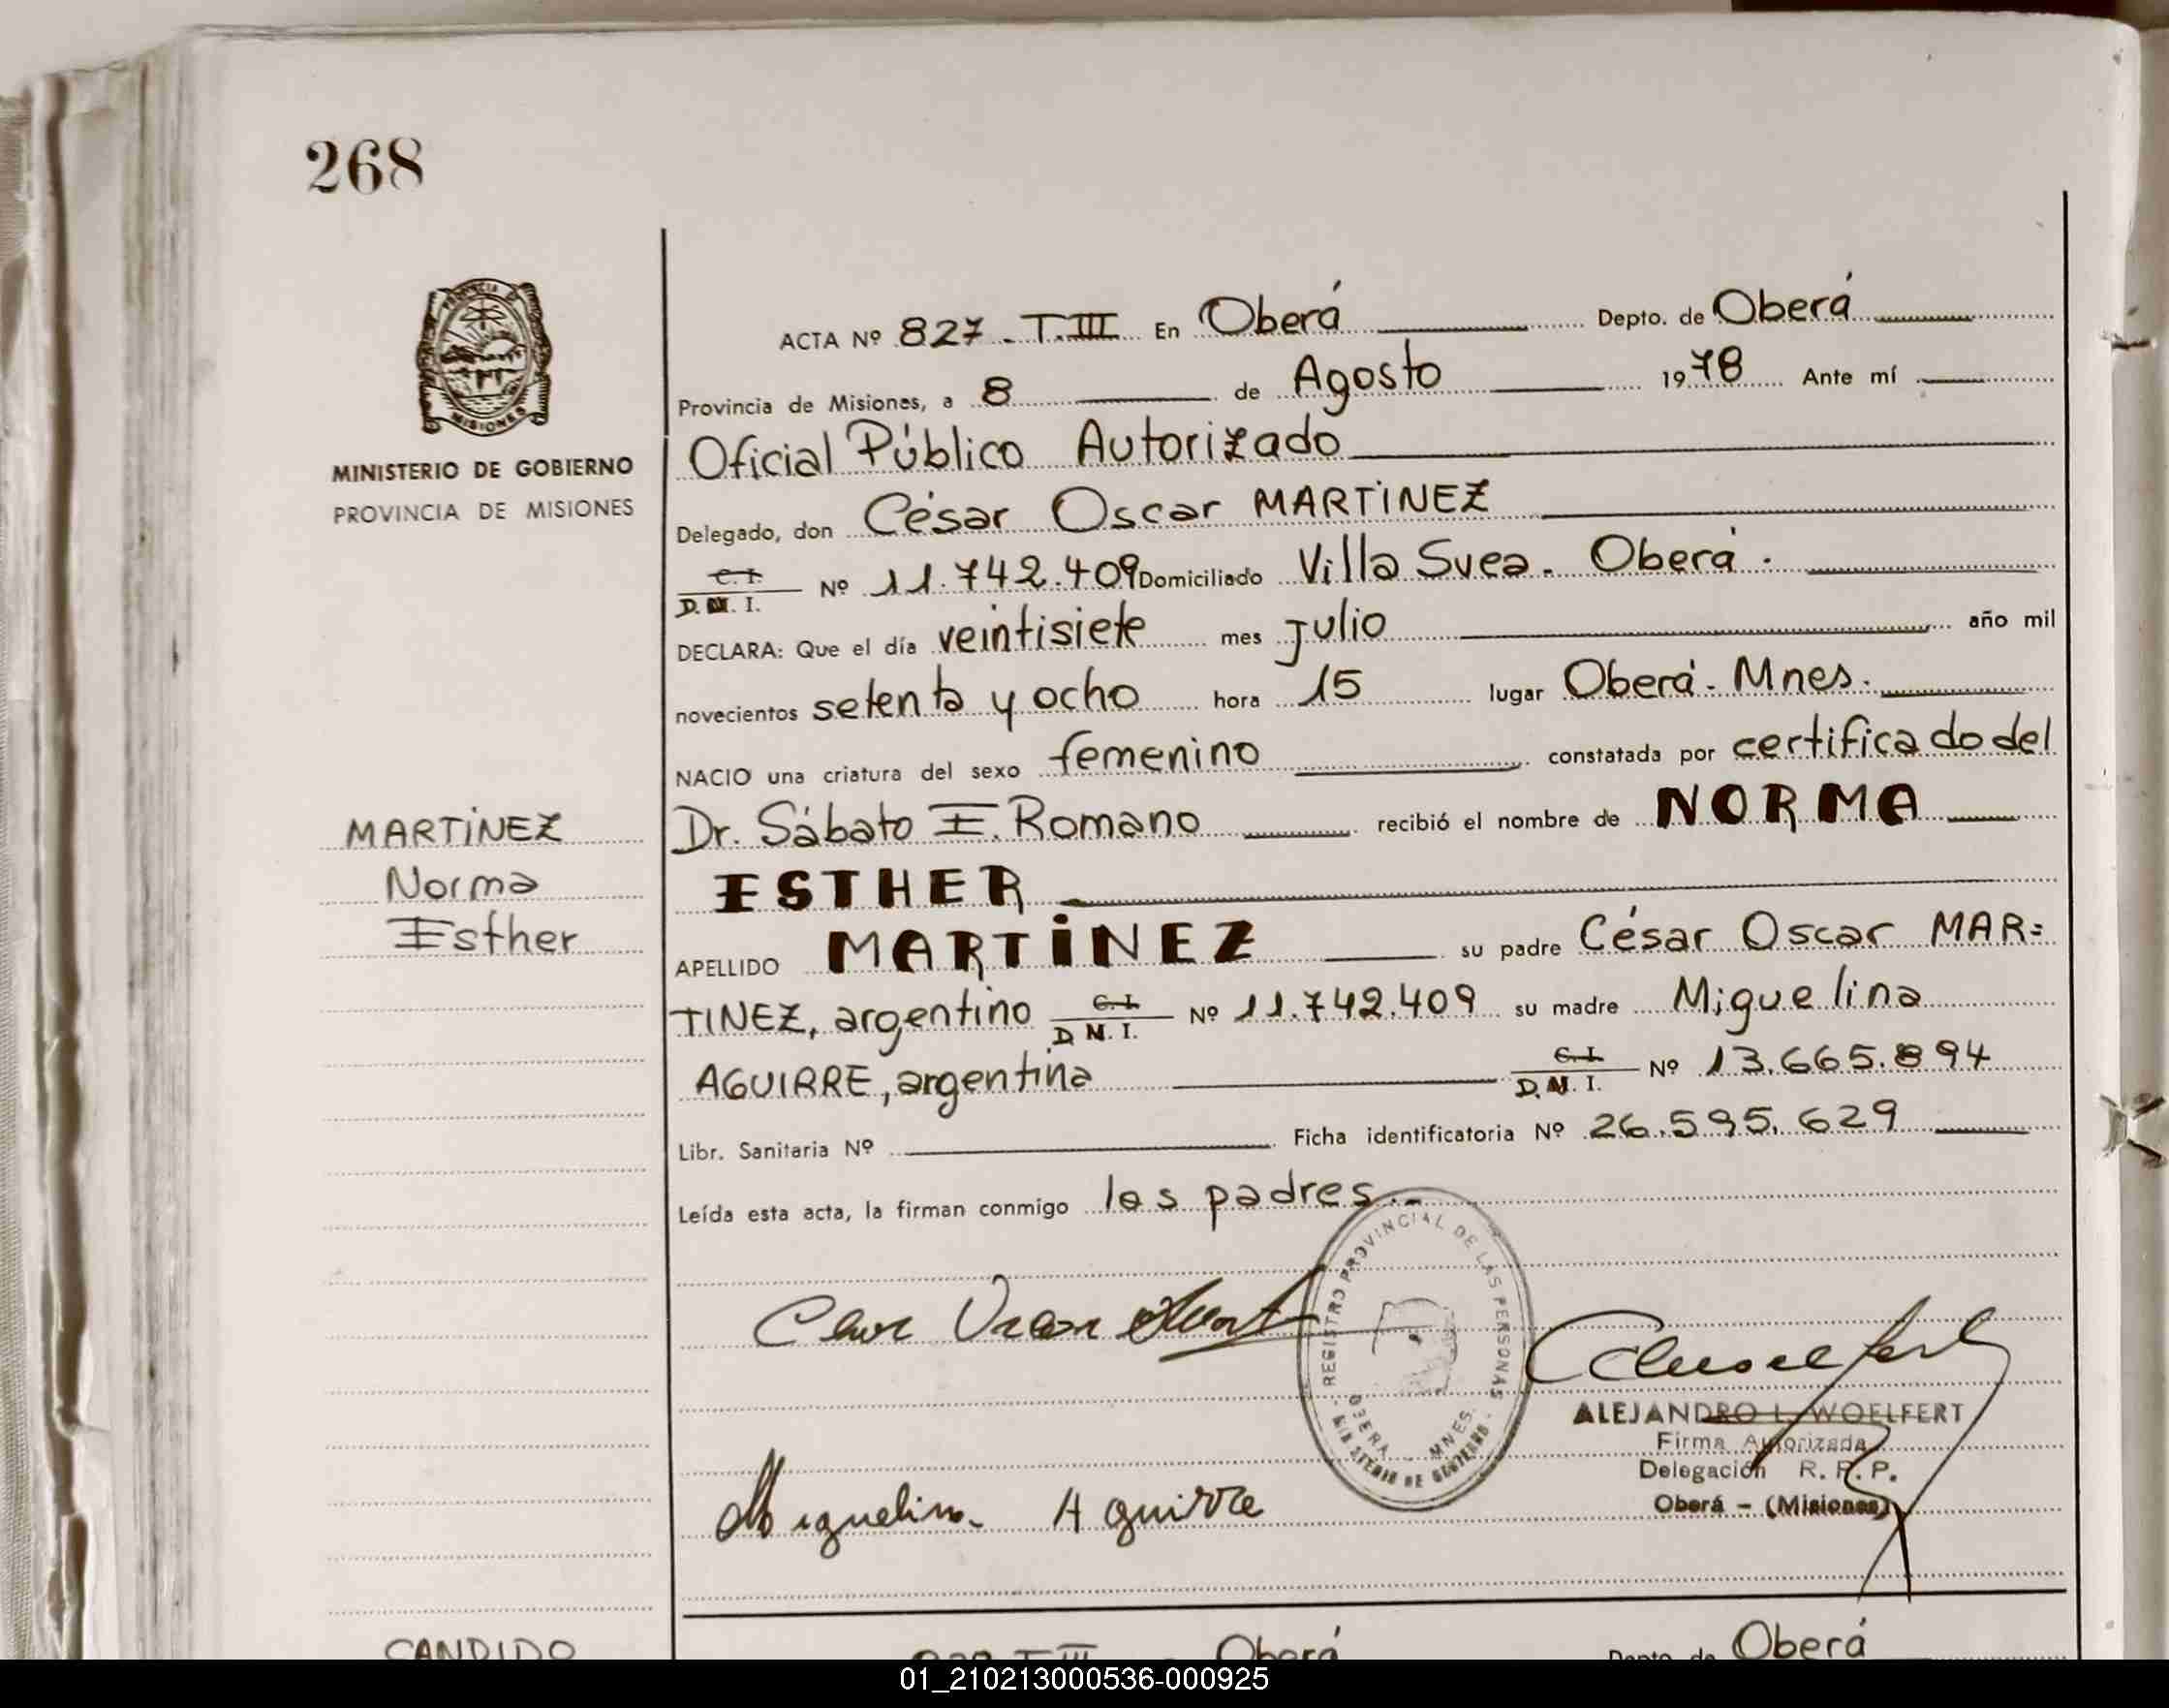 268
PROVINCIA DE
MISIONES
MINISTERIO DE GOBIERNO
PROVINCIA DE MISIONES
ACTA Nº 827 - T.III En Oberá Depto. de Oberá
Provincia de Misiones, a 8 de Agosto 1978 Ante mí
Oficial Público Autorizado
Delegado, don César Oscar MARTINEZ
C. I. / D. N. I. Nº 11.742.409 Domiciliado Villa Svea - Oberá.
DECLARA: Que el día veintisiete mes julio año mil
novecientos setenta y ocho hora 15 lugar Oberá - Mnes.
NACIO una criatura del sexo femenino constatada por certificado del
MARTINEZ
Norma
Esther
Dr. Sábato E. Romano recibió el nombre de NORMA
ESTHER
APELLIDO MARTINEZ su padre César Oscar MAR=
TINEZ, argentino C. I. / D N. I. Nº 11.742.409 su madre Miguelina
AGUIRRE, argentina C. I. / D. N. I. Nº 13.665.894
Libr. Sanitaria Nº Ficha identificatoria Nº 26.595.629
Leída esta acta, la firman conmigo los padres.-
REGISTRO PROVINCIAL DE LAS PERSONAS
OBERA - MNES.
MINISTERIO DE GOBIERNO
Miguelina Aguirre
ALEJANDRO L. WOELFERT
Firma Autorizada
Delegación R. P. P.
Oberá - (Misiones)
CANDIDO
Oberá Depto. de Oberá
01_210213000536-000925